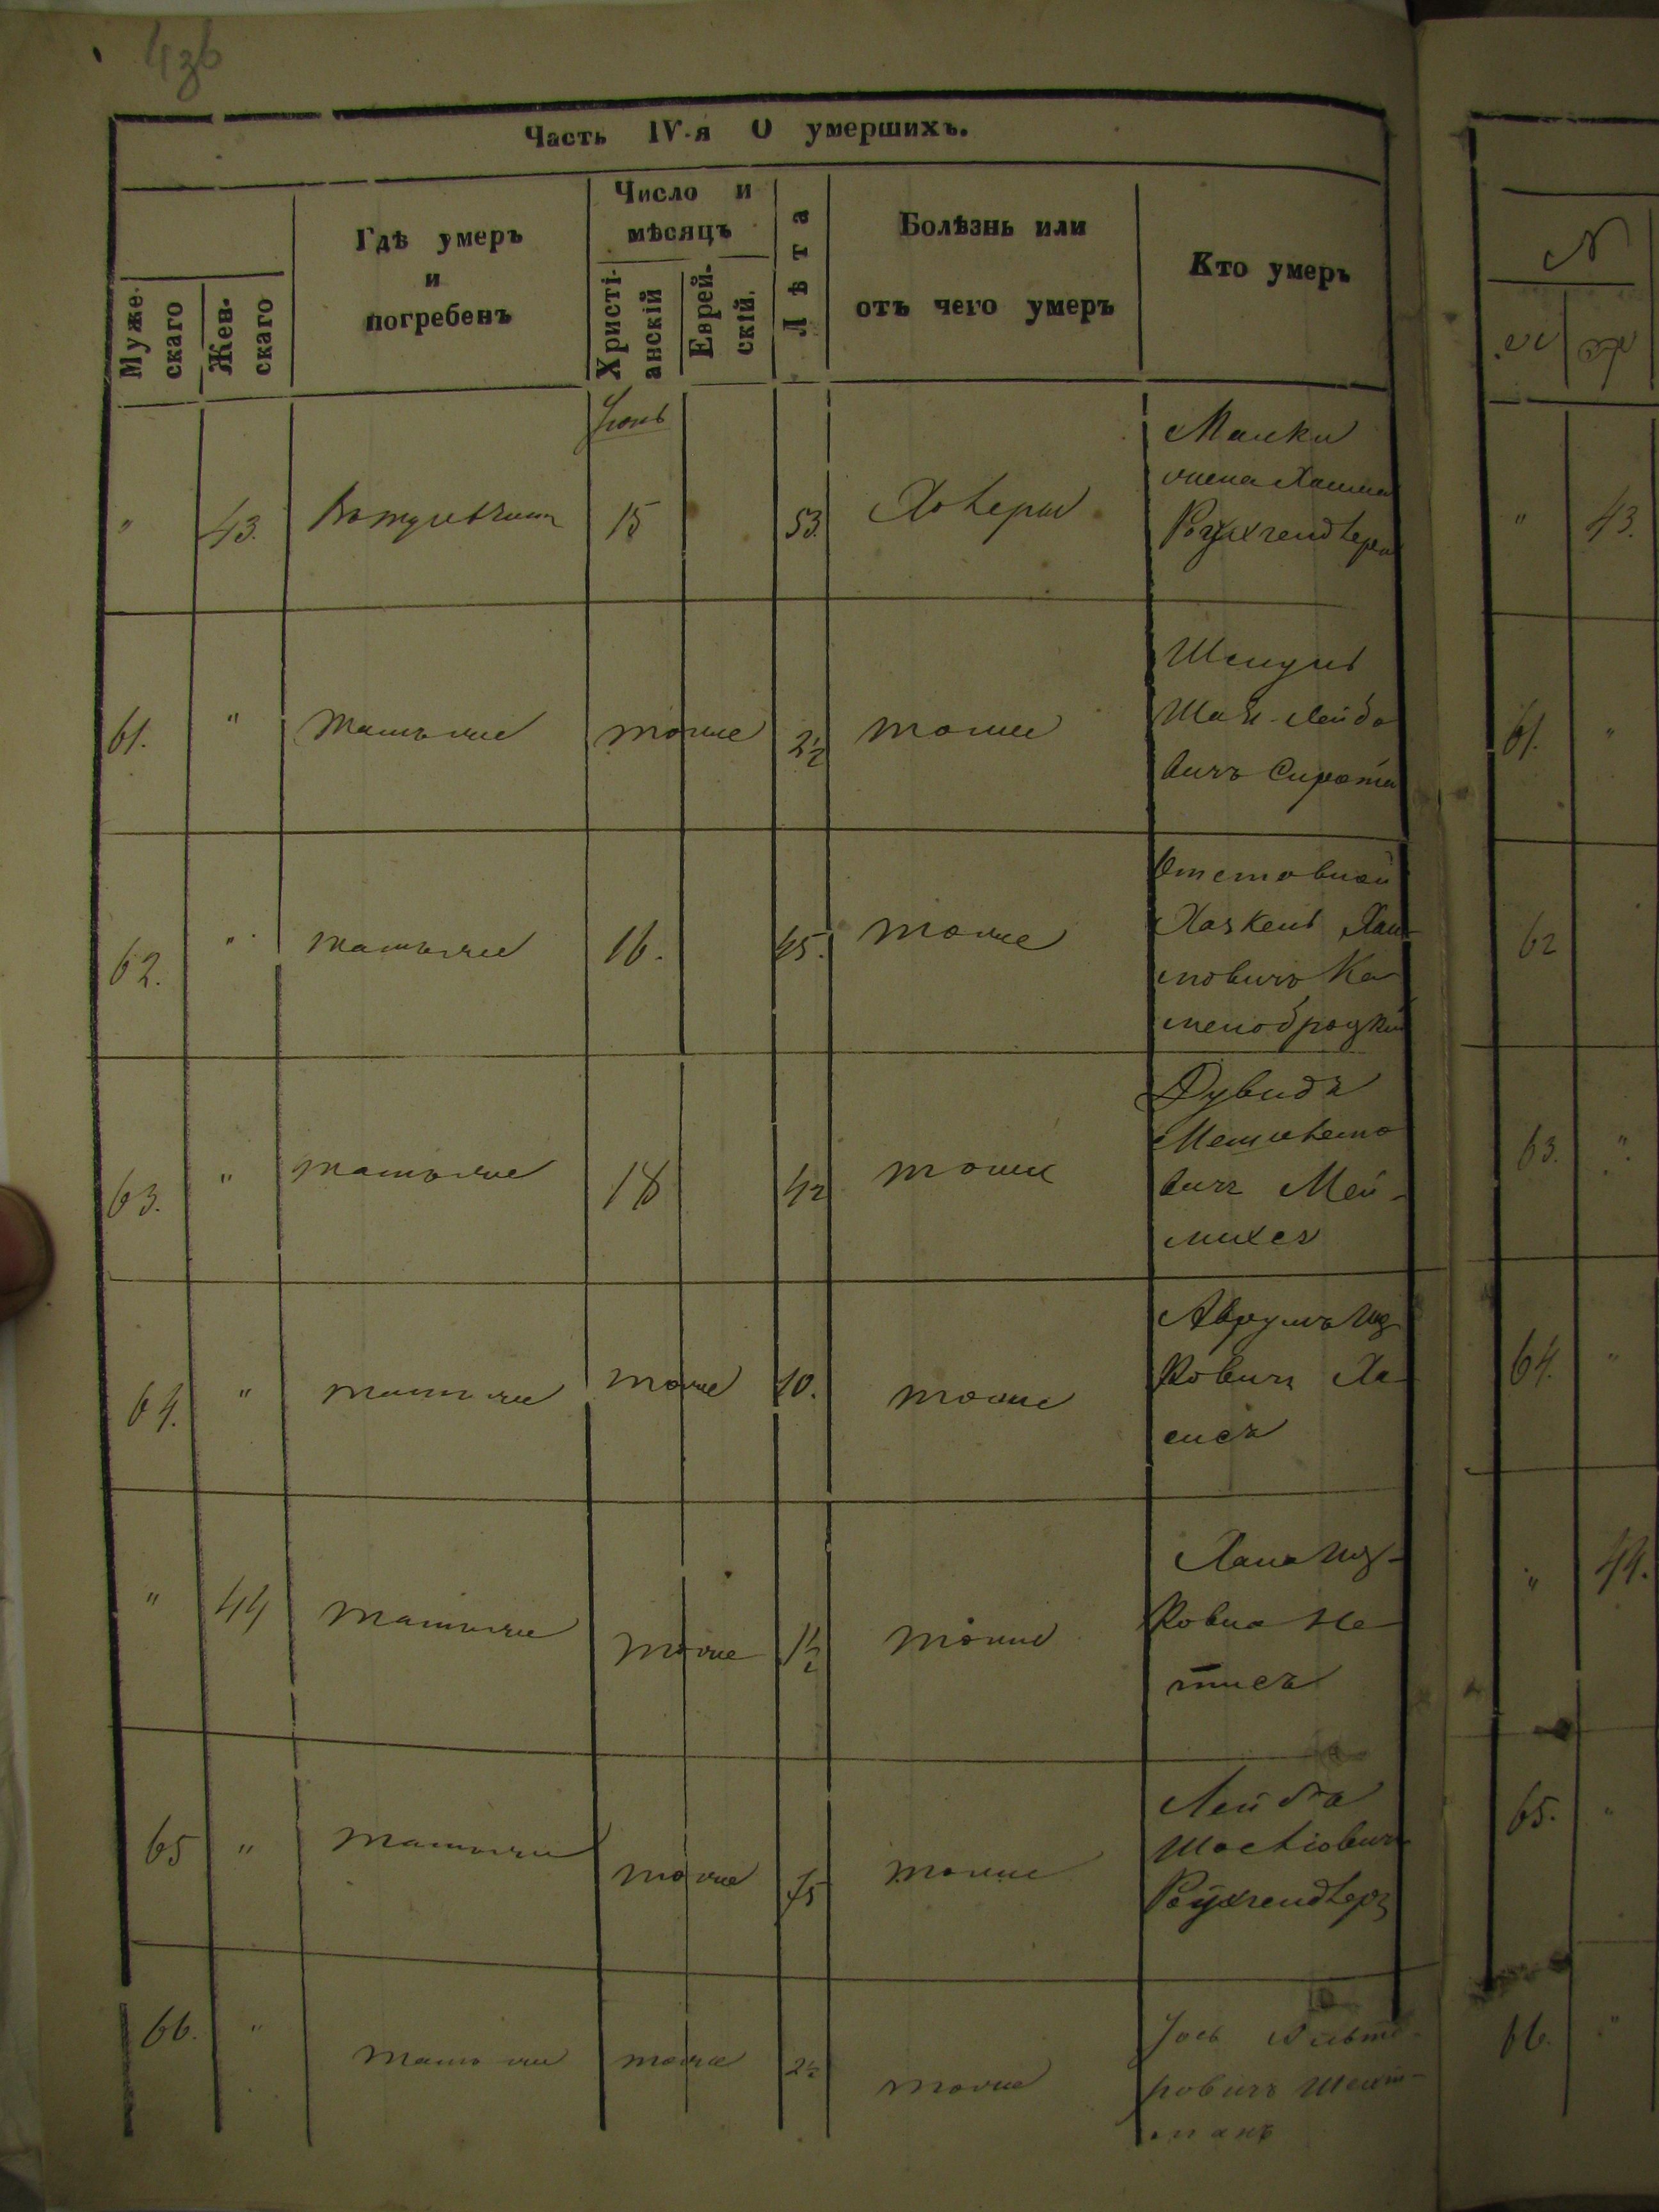 436
Часть IV-я О умершихъ.
Муже-
скаго
Жен-
скаго
Гдѣ умеръ
и
погребенъ
Число и
мѣсяцъ
Христі-
анскій
Еврей-
скій.
Лѣта
Болѣзнь или
отъ чего умеръ
Кто умеръ
Іюнь
" 43. 15 53. Холеры
Малки
жена Хаима
61. " тамъ же тоже 2½ тоже
Шмуль
Лейбо
вичъ Сирота
62. " тамъ же 16. 45. тоже
Отставной
Хаскель Хаи-
мовичъ Ка
менобродкій
63. " тамъ же 18 42 тоже
Дувидъ
вичъ Мей-
64. " тамъ же тоже 10. тоже
Аврумъ Иц
ковичъ Ха
" 44 тамъ же тоже 1½ тоже
Хана Иц-
ковна
65 " тамъ же тоже 75 тоже
Лейба
66. " тамъ же тоже 2½ тоже
Іось
ровичъ
манъ
N
м ж
" 43.
61. "
62
63. "
64. "
" 44.
65. "
66. "